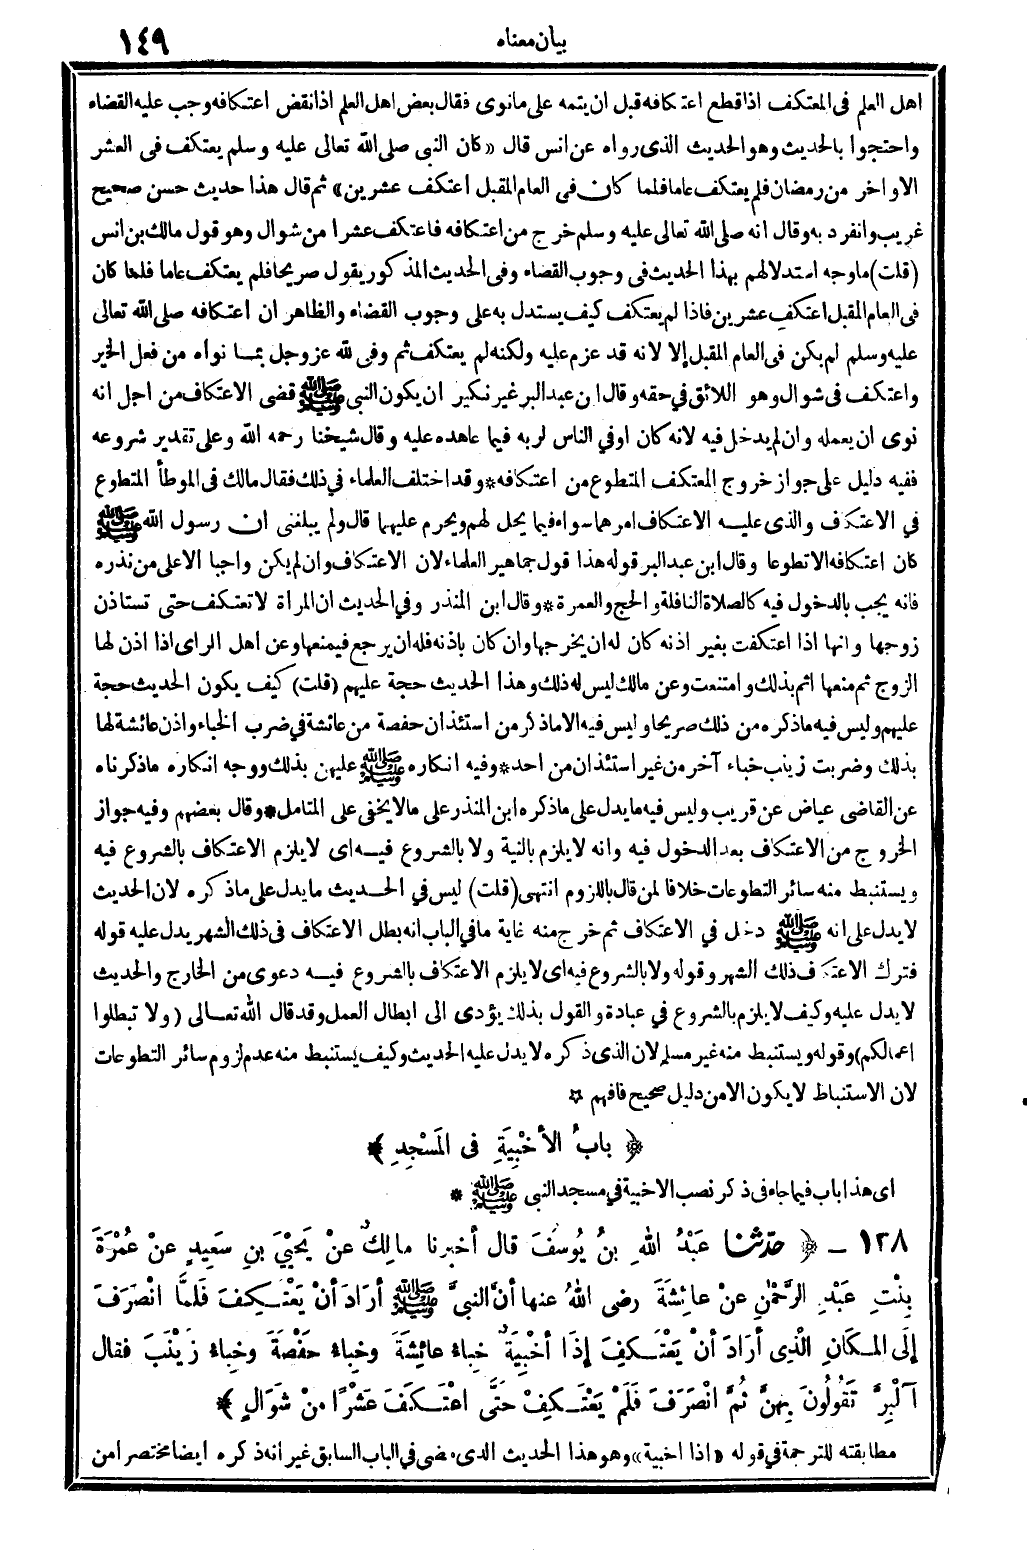 بيان معناه ١٤٩
اهل العلم فى المعتكف اذا قطع اعتكافه قبل ان يتمه على ما نوى فقال بعض اهل العلم اذا نقض اعتكافه وجب عليه القضاء
واحتجوا بالحديث وهو الحديث الذى رواه عن انس قال «كان النبى صلى الله تعالى عليه وسلم يعتكف فى العشر
الاواخر من رمضان فلم يعتكف عاما فلما كان فى العام المقبل اعتكف عشرين» ثم قال هذا حديث حسن صحيح
غريب وانفرد به وقال انه صلى الله تعالى عليه وسلم خرج من اعتكافه فاعتكف عشرا من شوال وهو قول مالك بن انس
(قلت) ما وجه استدلالهم بهذا الحديث فى وجوب القضاء وفى الحديث المذكور يقول صريحا فلم يعتكف عاما فلما كان
فى العام المقبل اعتكف عشرين فاذا لم يعتكف كيف يستدل به على وجوب القضاء والظاهر ان اعتكافه صلى الله تعالى
عليه وسلم لم يكن فى العام المقبل إلا لانه قد عزم عليه ولكنه لم يعتكف ثم وفى لله عز وجل بما نواه من فعل الخير
واعتكف فى شوال وهو اللائق في حقه وقال ابن عبد البر غير نكير ان يكون النبى ﷺ قضى الاعتكاف من اجل انه
نوى ان يعمله وان لم يدخل فيه لانه كان اوفي الناس لربه فيما عاهده عليه وقال شيخنا رحمه الله وعلى تقدير شروعه
ففيه دليل على جواز خروج المعتكف المتطوع من اعتكافه * وقد اختلف العلماء في ذلك فقال مالك فى الموطأ المتطوع
في الاعتكاف والذى عليه الاعتكاف امرهما سواء فيما يحل لهم ويحرم عليهما قال ولم يبلغنى ان رسول الله ﷺ
كان اعتكافه الا تطوعا وقال ابن عبد البر قوله هذا قول جماهير العلماء لان الاعتكاف وان لم يكن واجبا الا على من نذره
فانه يجب بالدخول فيه كالصلاة النافلة والحج والعمرة * وقال ابن المنذر وفي الحديث ان المراة لا تعتكف حتى تستاذن
زوجها وانها اذا اعتكفت بغير اذنه كان له ان يخرجها وان كان باذنه فله ان يرجع فيمنعها وعن اهل الراى اذا اذن لها
الزوج ثم منعها اثم بذلك وامتنعت وعن مالك ليس له ذلك وهذا الحديث حجة عليهم (قلت) كيف يكون الحديث حجة
عليهم وليس فيه ما ذكره من ذلك صريحا وليس فيه الا ما ذكر من استئذان حفصة من عائشة في ضرب الخباء واذن عائشة لها
بذلك وضربت زينب خباء آخر من غير استئذان من احد * وفيه انكاره ﷺ عليهن بذلك ووجه انكاره ما ذكرناه
عن القاضى عياض عن قريب وليس فيه ما يدل على ما ذكره ابن المنذر على ما لا يخفى على المتامل * وقال بعضهم وفيه جواز
الخروج من الاعتكاف بعد الدخول فيه وانه لا يلزم بالنية ولا بالشروع فيه اى لا يلزم الاعتكاف بالشروع فيه
ويستنبط منه سائر التطوعات خلافا لمن قال باللزوم انتهى (قلت) ليس في الحديث ما يدل على ما ذكره لان الحديث
لا يدل على انه ﷺ دخل في الاعتكاف ثم خرج منه غاية ما في الباب انه بطل الاعتكاف فى ذلك الشهر يدل عليه قوله
فترك الاعتكاف ذلك الشهر وقوله ولا بالشروع فيه اى لا يلزم الاعتكاف بالشروع فيه دعوى من الخارج والحديث
لا يدل عليه وكيف لا يلزم بالشروع في عبادة والقول بذلك يؤدى الى ابطال العمل وقد قال الله تعالى (ولا تبطلوا
اعمالكم) وقوله ويستنبط منه غير مسلم لان الذى ذكره لا يدل عليه الحديث وكيف يستنبط منه عدم لزوم سائر التطوعات
لان الاستنباط لا يكون الا من دليل صحيح فافهم *
﴿ بابُ الأخْبِيَةِ فى المَسْجِدِ ﴾
اى هذا باب فيما جاء فى ذكر نصب الاخبية في مسجد النبى ﷺ *
١٢٨ ـ ﴿ حدّثنا عَبْدُ اللهِ بنُ يُوسُفَ قال أخبرنا مالِكٌ عنْ يَحْيَى بنِ سَعِيدٍ عنْ عُمْرَةَ
بِنْتِ عَبْدِ الرَّحْمٰنِ عنْ عائِشَةَ رضى اللهُ عنها أنَّ النبىَّ ﷺ أرَادَ أنْ يَعْتَكِفَ فَلَمَّا انْصَرَفَ
إلَى المَكانِ الَّذِى أرَادَ أنْ يَعْتَكِفَ إذَا أخْبِيَةٌ خِباءُ عائِشَةَ وخِباءُ حَفْصَةَ وخِباءُ زَيْنَبَ فقال
آلْبِرَّ تَقُولُونَ بِهِنَّ ثُمَّ انْصَرَفَ فَلَمْ يَعْتَكِفْ حَتَّى اعْتَكَفَ عَشْرًا منْ شَوَّالٍ ﴾
مطابقته للترجمة في قوله «اذا اخبية» وهو هذا الحديث الذى مضى في الباب السابق غير انه ذكره ايضا مختصرا من